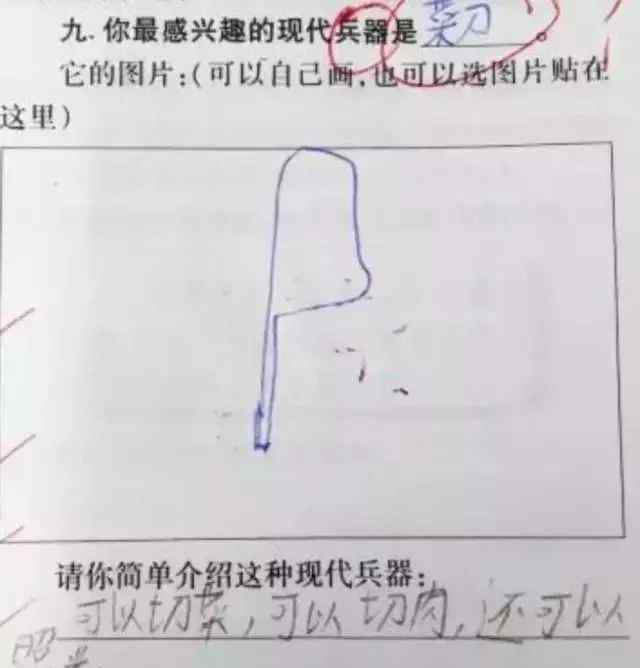 九.你最感兴趣的现代兵器是 菜刀。
它的图片:(可以自己画,也可以选图片贴在
这里)
请你简单介绍这种现代兵器:
可以切菜,可以切肉,还可以